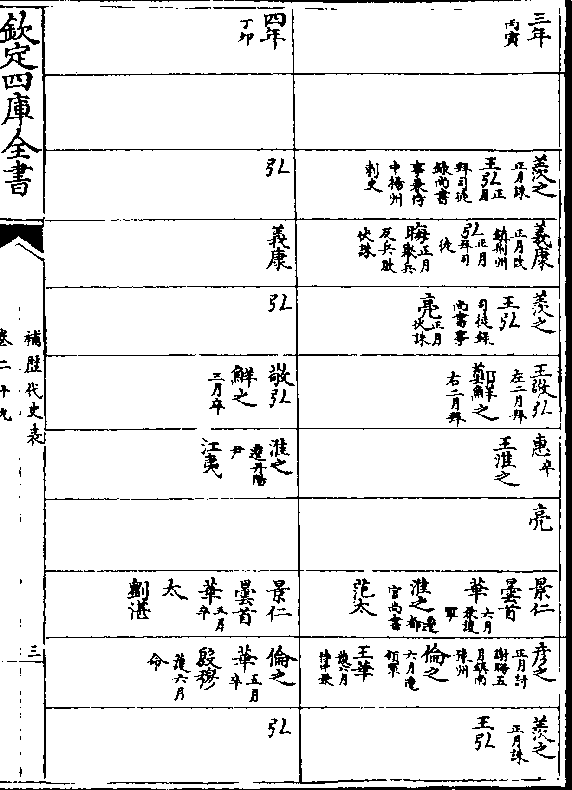 三年
丙寅
羨之
正月誅
王弘正月
拜司徒
錄尚書
事兼侍
中揚州
刺史
義康
正月改
鎮荆州
弘正月
拜司
徒
晦正月
舉兵
反兵敗
伏誅
羨之
王弘
司徒錄
尚書事
亮正月
伏誅
王敬弘
左二月拜
鄭鮮之
右二月拜
惠卒
王淮之
亮
景仁
曇首
華六月
兼護
軍
淮之遷
都
官尚書
范太
彥之
正月討
謝晦五
月鎮南
豫州
倫之
六月遷
領軍
王華
護六月
侍中兼
羨之
正月誅
王弘
四年
丁卯
弘
義康
弘
敬弘
鮮之
三月卒
淮之
遷丹陽
尹
江夷
景仁
曇首
華五月
卒
太
劉湛
倫之
華五月
卒
殷穆
護六月
命
弘
欽定四庫全書
補歷代史表
卷二十九
三